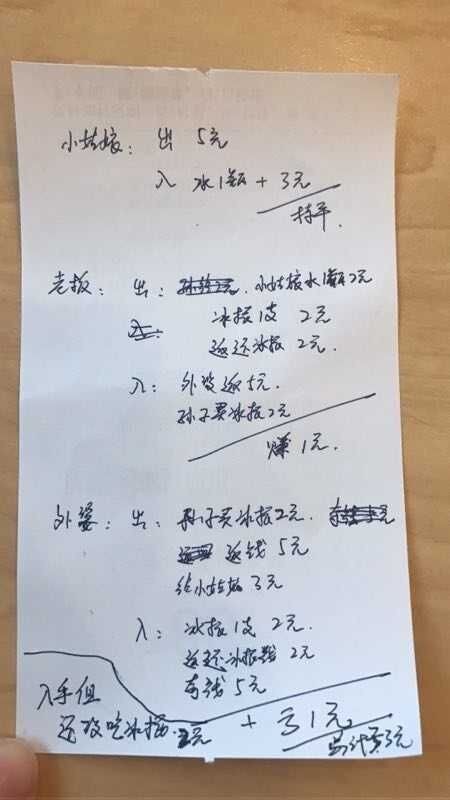 小姑娘：出 5元
入 水1瓶 + 3元
持平.
老板：出：小姑娘水1瓶2元
冰棍1支 2元
返还冰棍 2元.
入：
入：外婆返5元.
孙子买冰棍2元
赚1元.
外婆：出：孙子买冰棍2元.
返钱 5元
给小姑娘 3元
入：冰棍1支 2元.
返还冰棍钱 2元
5元
入手但
还没吃冰棍. 2元
+ 亏1元
共计亏3元